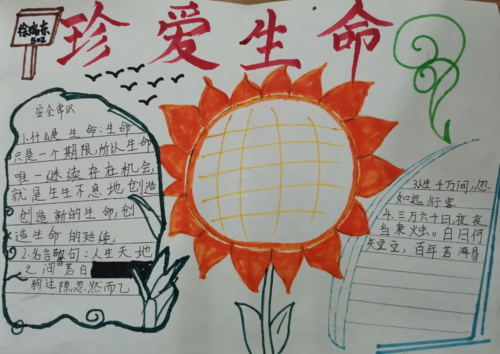 徐瑞东
502
珍爱生命
安全常识
1.什么是生命:生命
只是一个期限,所以生命
唯一继续存在机会,
就是生生不息地创造
创造新的生命,创
造生命的延续。
2.名言警句:人生天地
之间若白
驹过隙,忽然而已
3.人生千万间,忽
如远行客
4.三万六千日,夜夜
当秉烛。白日何
短短,百年苦